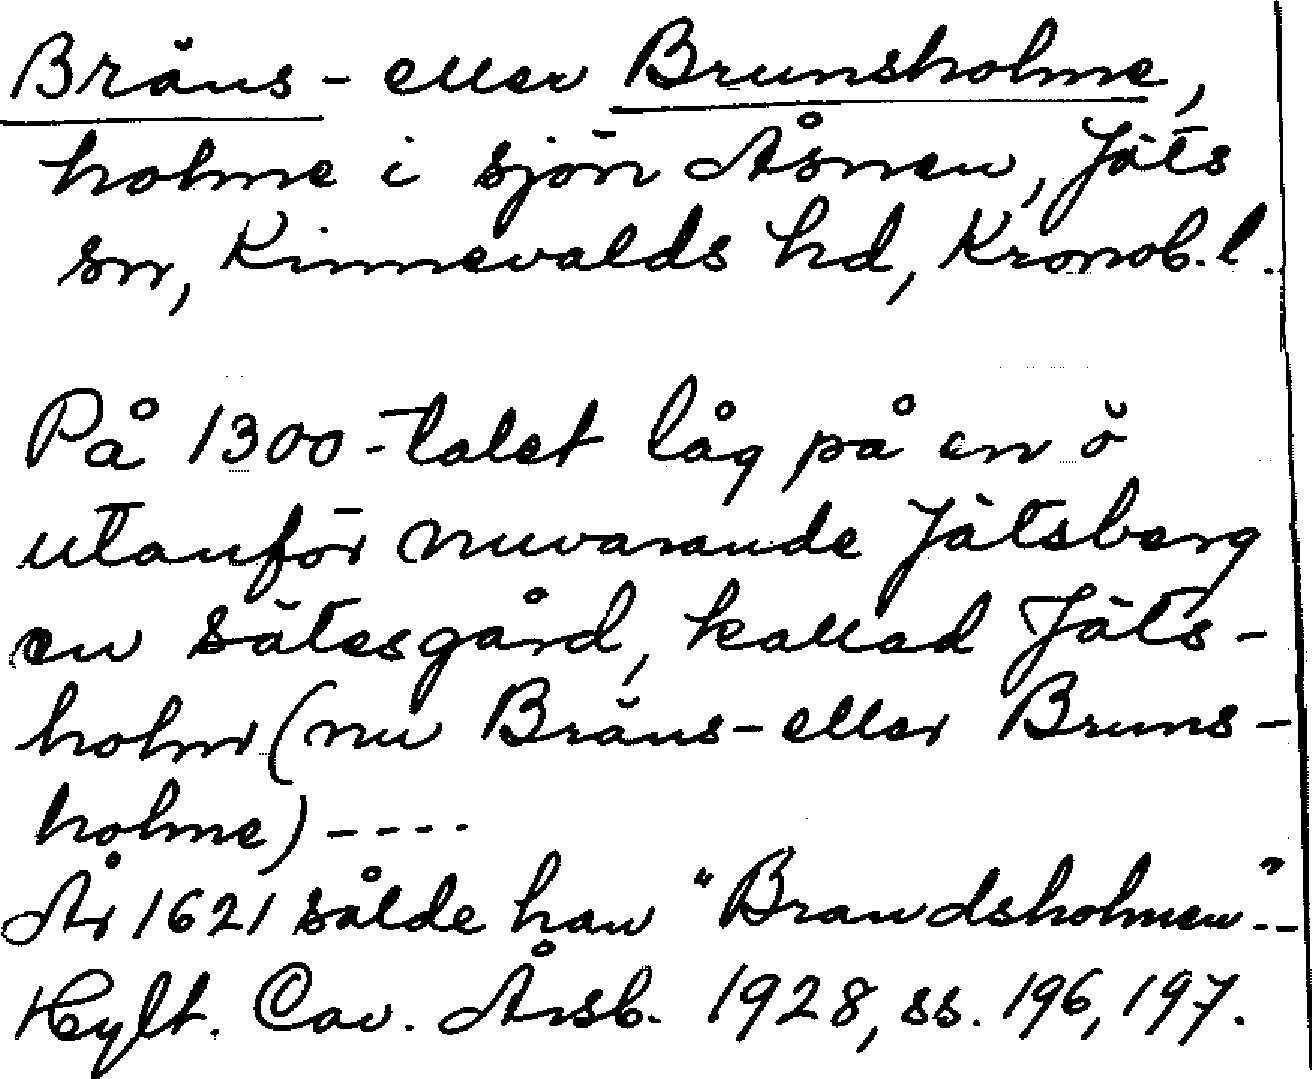 Bräns- eller Brunsholme,
holme i sjön Åsnen, Jäts
sn, Kinnevalds hd, Kronob. l.
På 1300-talet låg på en ö
utanför nuvarande Jätsberg
en sätesgård, kallad Jäts-
holm (nu Bräns- eller Bruns-
holme) ----
År 1621 sålde han "Brandsholmen"--
Hylt. Cav. Årsb. 1928, ss. 196, 197.